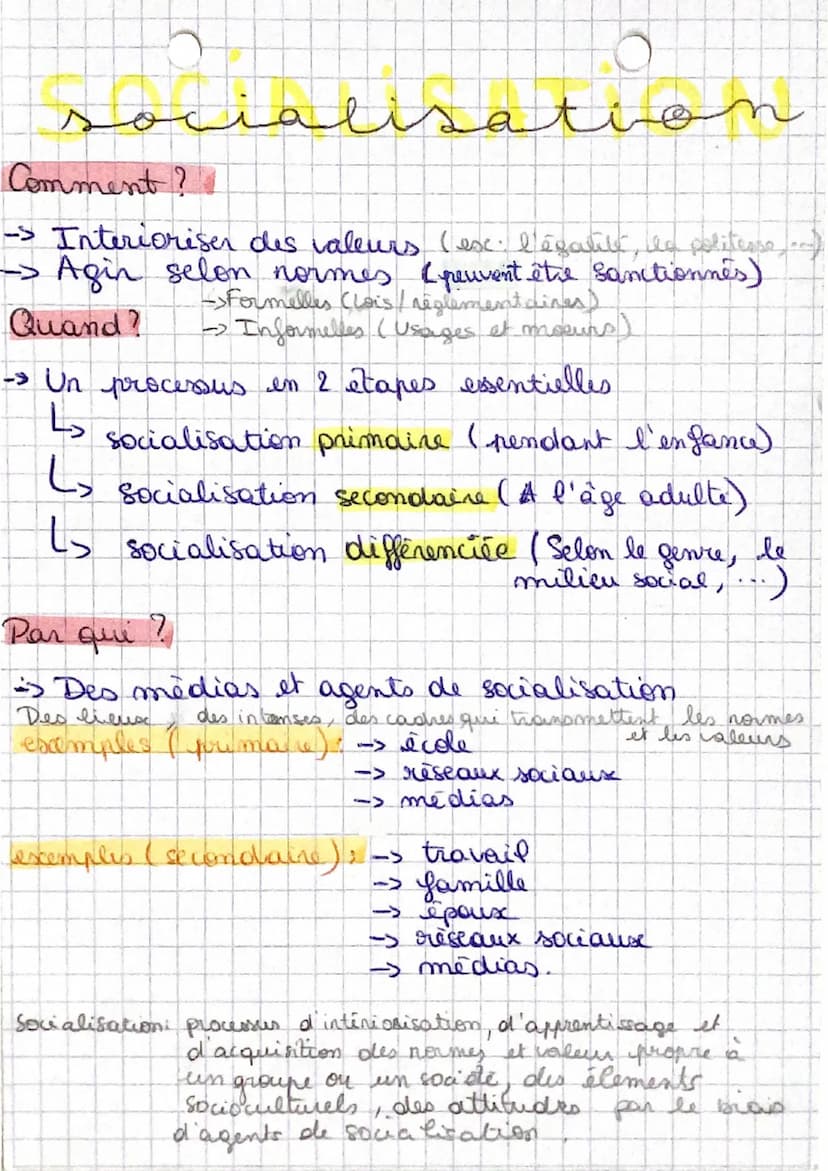 SOCIALISATION
socialisation
Comment ?
-> Interioriser des valeurs (ex: l'égalité, la politesse, ...)
-> Agir selon normes (peuvent être sanctionnés)
-> Formelles (Lois / réglementaires)
Quand ?
-> Informelles (Usages et moeurs)
-> Un processus en 2 étapes essentielles
↳ socialisation primaire (pendant l'enfance)
↳ socialisation secondaire (A l'âge adulte)
↳ socialisation différenciée (Selon le genre, le
milieu social, ...)
Par qui ?
-> Des médias et agents de socialisation
Des lieux, des , des cadres qui transmettent les normes
et les valeurs
exemples (primaire) : -> école
-> réseaux sociaux
-> médias
exemples (secondaire) : -> travail
-> famille
-> époux
-> réseaux sociaux
-> médias.
Socialisation: processus d'intériorisation, d'apprentissage et
d'acquisition des normes et valeur propre à
un groupe ou un société, des élements
socioculturels, des attitudes par le biais
d'agents de socialisation.